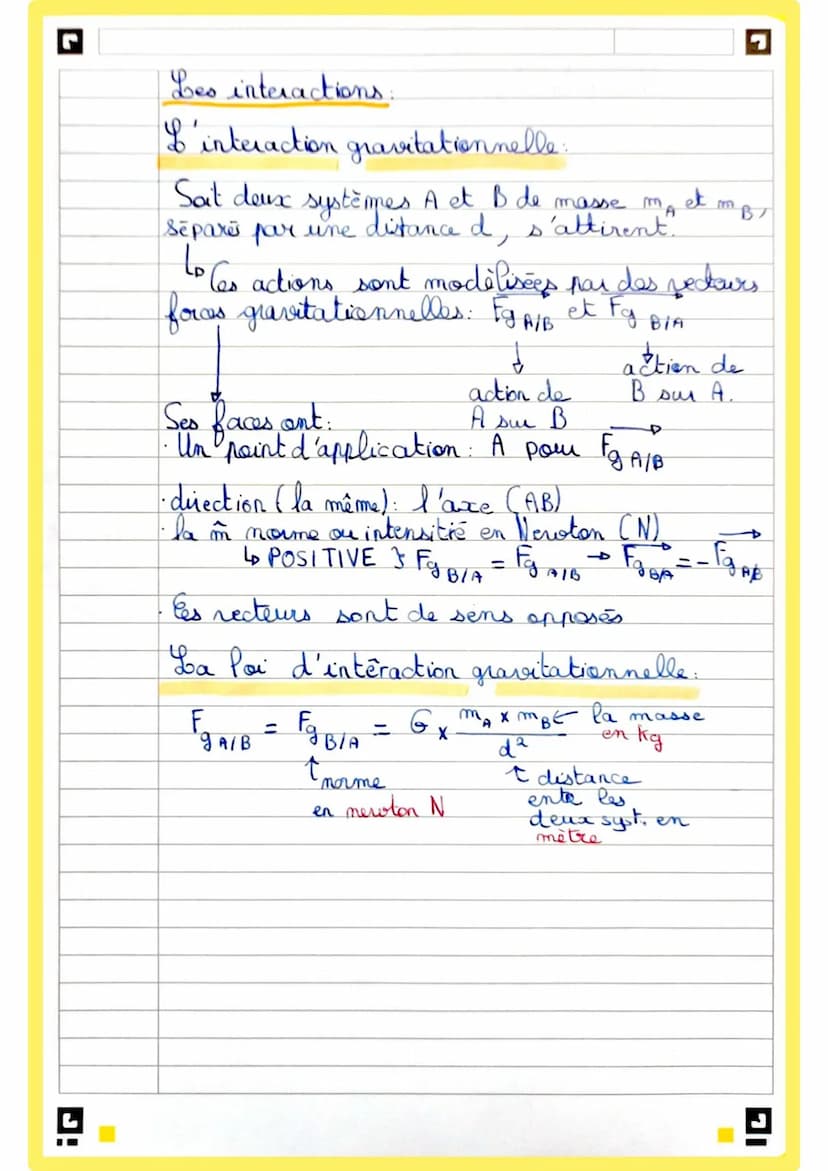 Les interactions:
L'interaction gravitationnelle:
Soit deux systèmes A et B de masse mA et mB,
séparé par une distance d, s'attirent.
↳ Ces actions sont modélisées par des vecteurs
forces gravitationnelles: Fg A/B et Fg B/A
↓ ↓
action de A sur B
action de B sur A.
Ses forces ont:
· Un point d'application: A pour Fg A/B
· direction (la même): l'axe (AB)
· la m̄ norme ou intensitié en Newton (N)
↳ POSITIVE } Fg B/A = Fg A/B → Fg B/A = - Fg A/B
· Ces vecteurs sont de sens opposés
La loi d'intéraction gravitationnelle:
Fg A/B = Fg B/A = G x mA x mB / d² ← la masse
en kg
↑ norme
en newton N
↑ distance
ente les
deux syst. en
mètre